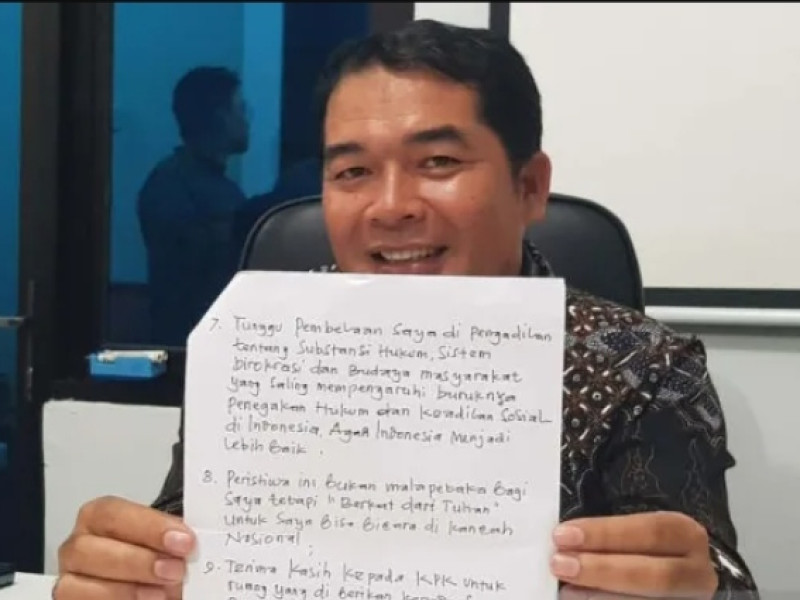 7. Tunggu Pembelaan Saya di Pengadilan
tentang Substansi Hukum, Sistem
birokrasi dan Budaya masyarakat
yang Saling mempengaruhi buruknya
Penegakan Hukum dan Keadilan Sosial
di Indonesia, Agar Indonesia Menjadi
Lebih Baik.
8. Peristiwa ini Bukan malapebaka Bagi
Saya tetapi "Berkat dari Tuhan"
Untuk Saya Bisa Bicara di kancah
Nasional;
9. Terima Kasih Kepada KPK Untuk
ruang yang di berikan